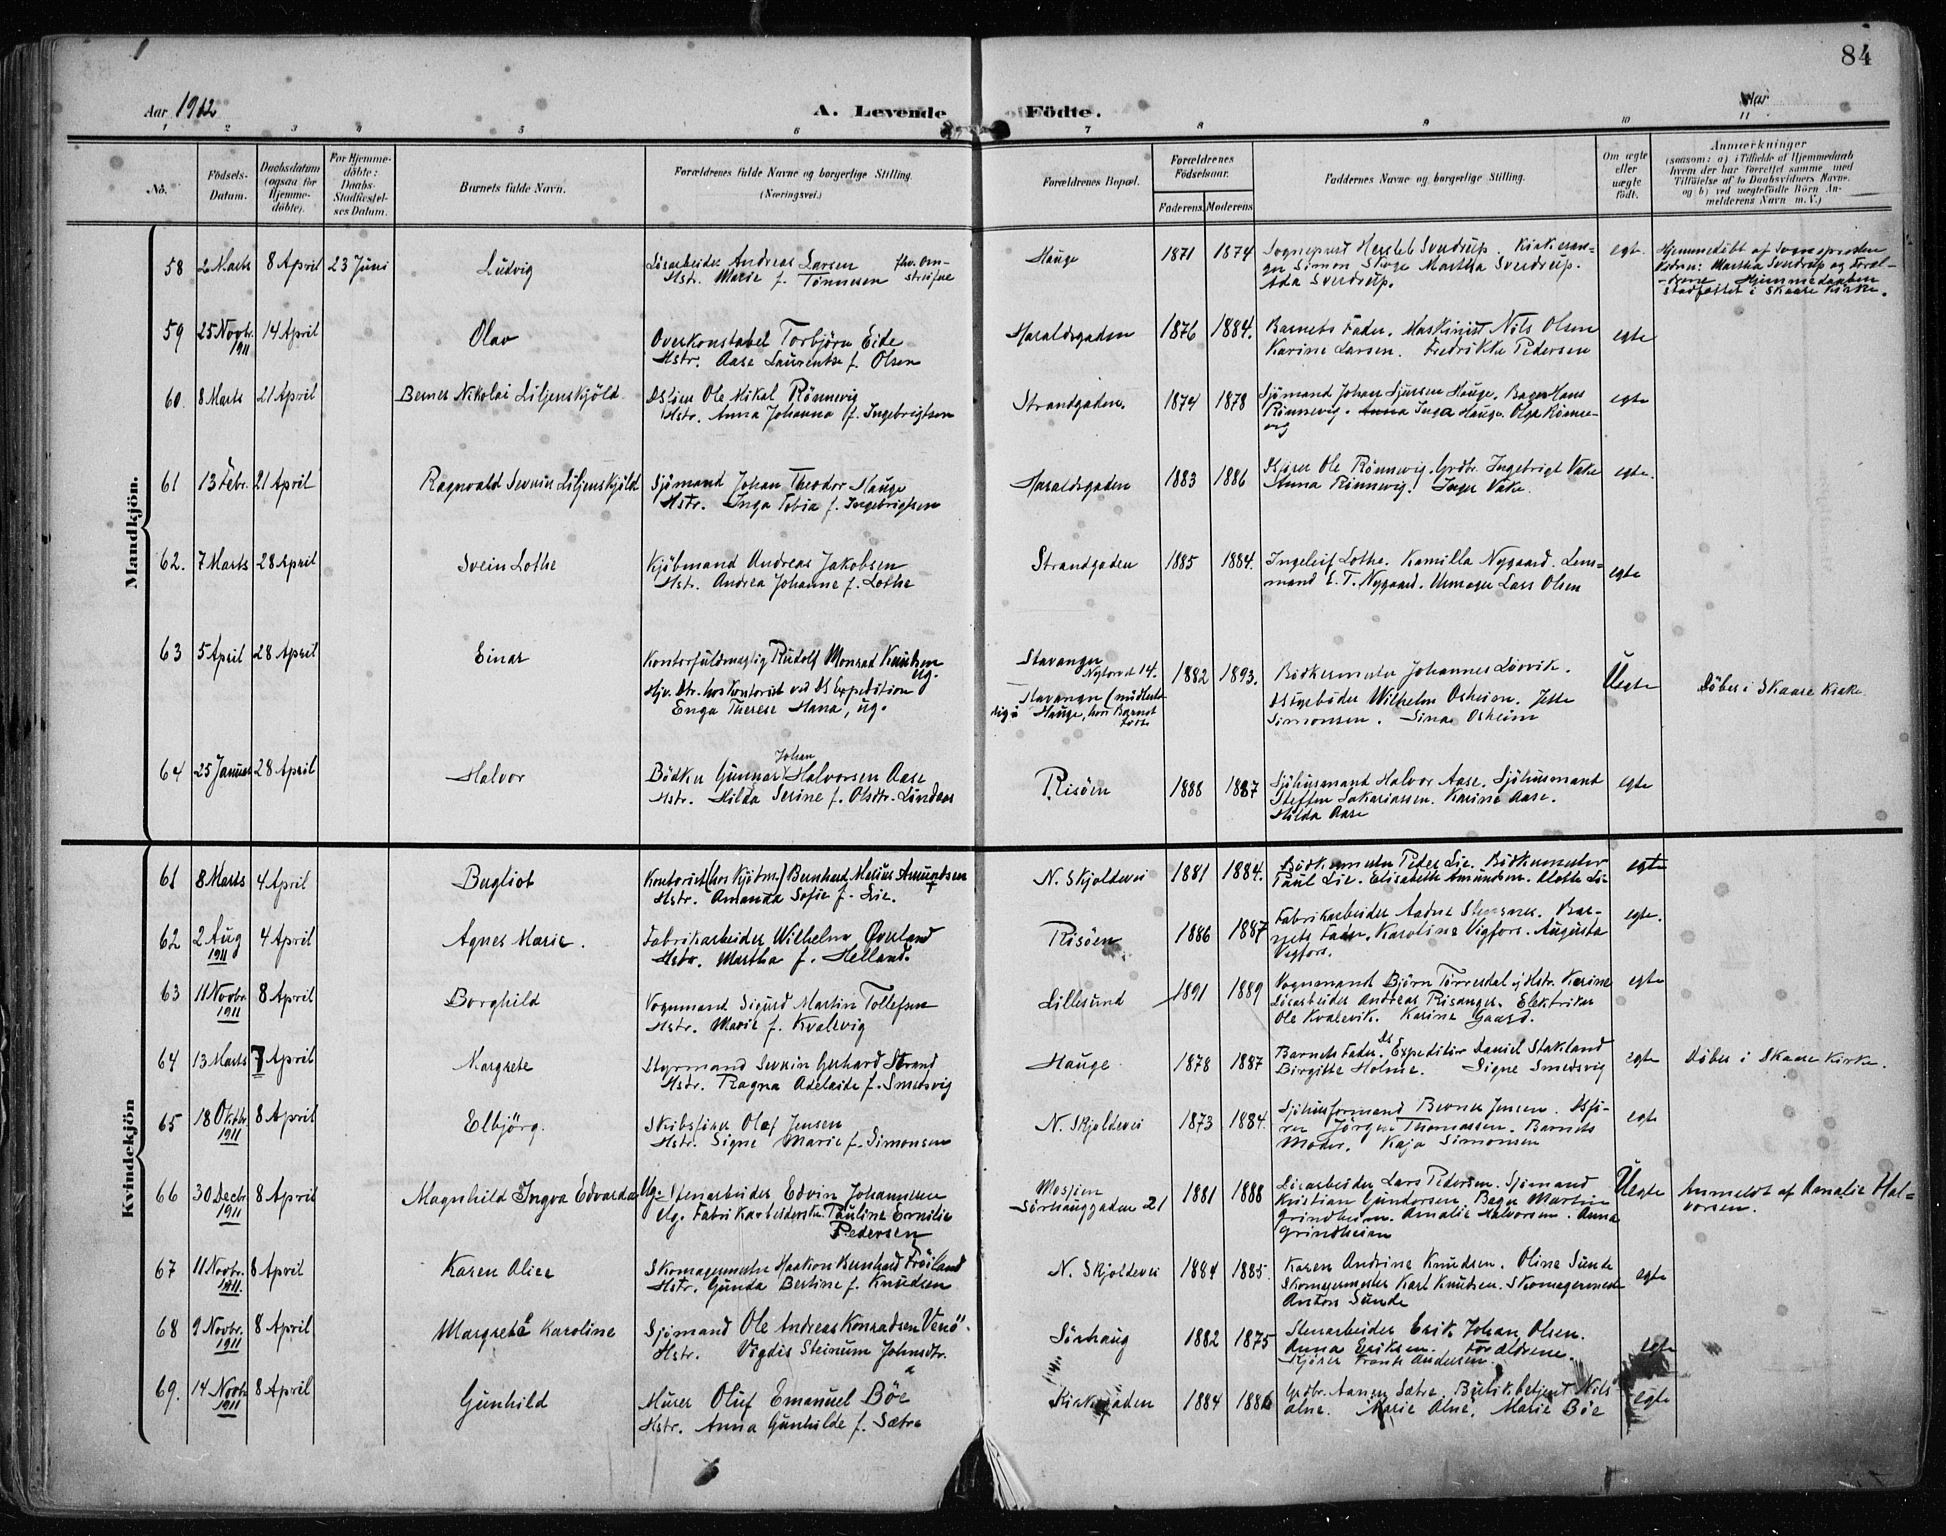 84
Aar 1912
A. Levende Födte.
Aar
1 2 3 4 5 6 7 8 9 10 11
No.
Födsels-Datum.
Daabsdatum (ogsaa for Hjemme-döbte).
For Hjemme-döbte: Daabs-Stadfæstel-ses Datum.
Barnets fulde Navn.
Forældrenes fulde Navne og borgerlige Stilling. (Næringsvei.)
Forældrenes Bopæl.
Forældrenes Födselsaar.
Faderens. Moderens.
Faddernes Navne og borgerlige Stilling.
Om ægte eller uægte födt.
Anmærkninger
(saasom: a) i Tilfælde af Hjemmedaab hvem der har forrettet samme med Tilföielse af to Daabsvidners Navne. og b) ved uægtefödte Börn An-melderens Navn m. V.)
Mandkjön.
58 2 Marts 8 April 23 Juni Ludvig
Lösarbeider Andreas Larsen
Hstr. Marie f. Tönnesen
Hauge 1871 1874
Sogneprest Hersleb Sverdrup. Kirkesan-
ger Simon Stoge Martha Sverdrup.
Ada Sverdrup.
egt.
Hjemmedöbt af Sognepresten
Vidner: Martha Sverdrup og Foræl-
drene Hjemmedaaben
stadfæstet i Skaare Kirke.
59 25 Novbr. 1911 14 April Olav
Overkonstabel Torbjörn Eide
Hstr. Aase Laurentse f. Olsen
Haraldsgaden 1876 1884.
Barnets Fader. Maskinist Nils Olsen
Karine Larsen. Fredrikke Pedersen
egte
60 8 Marts 21 April Bernes Nikolai Liljenskjöld
Ole Mikal Rönnevig
Hstr. Anna Johanna f. Ingebrigtsen
Strandgaden. 1874 1878
Sjömand Johan Sjursen Hauge. Bager Hans
Rönnevig. Anna Inga Hauge. Olga Rönne-
vig
egte
61 13 Febr. 21 April Ragnvald Severin Liljenskjöld
Sjömand Johan Theodor Hauge
Hstr. Inga Tobia f. Ingebrigtsen
Haraldsgaden 1883 1886
Ole Rönnevig. Grdbr. Ingebrigt Vake
Anna Rönnevig. Inger Vake.
egte.
62. 7 Marts 28 April Svein Lothe
Kjöbmand Andreas Jakobsen
Hstr. Andrea Johanne f. Lothe
Strandgaden 1885 1884.
Ingeleif Lothe. Kamilla Nygaard. Lens-
mand E. T. Nygaard. Urmager Lars Olsen
egte
63 5 April 28 April Einar
Kontorfuldmægtig Rudolf Monrad Knutsen
ug.
Hjv. Dtr. hos Kontorist ved DS Expedition
Enga Therese Hana, ug.
Stavanger
Nytorvet 14.
Stavanger (midlerti-
dig i Hauge, hvor Barnet
födt
1882 1893.
Bödkermester Johannes Lövvik.
Wilhelm Osheim. Jette
Simonsen. Sina Osheim
Uegte
Döbt i Skaare Kirke
64 25 Januar 28 April Halvor
Johan
Bödker Gunnar Halvorsen Aase
Hstr. Hilda Serine f. Olsdtr. Lindaas
Risöen 1888 1887
Sjöhusmand Halvor Aase. Sjöhusmand
Steffen Sakariassen. Karine Aase.
Hilda Aase
egte
Kvindekjön
61 8 Marts 4 April Bergliot
Kontorist (hos Kjöbm.) Bernhard Marius Amundsen
Hstr. Amanda Sofie f. Lie.
N. Skjoldevei 1881 1884.
Bödkermester Peder Lie. Bödkermester
Paul Lie. Elisabeth Amundsen. Lie
egte
62 2 Aug 1911 4 April Agnes Marie.
Fabrikarbeider Wilhelm Överland
Hstr. Martha f. Helland.
Risöen 1886 1887
Fabrikarbeider Aadne Stensnes. Bar-
nets Fader. Karoline Vigfors. Augusta
Vigfors.
egte.
63 11 Novbr. 1911 8 April Borghild
Vognmand Sigurd Martin Tollefsen
Hstr. Marie f. Kvalevig
Lillesund 1891 1889
Vognmand Björn Torresdal og Hstr. Karine
Lösarbeider Andreas Risanger. Elektriker
Ole Kvalevik. Karine Gaard.
egte
64 13 Marts 7 April Margrete
Styrmand Severin Gerhard Strand
Hstr. Ragna Adelaide f. Smedsvig
Hauge 1878 1887
Barnets Fader. DS Expeditör Daniel Stakland
Birgitte Holme. Signe Smedsvig
egte
Döbt i Skaare Kirke.
65 18 Oktbr. 1911 8 April Elbjörg.
Skibsförer Olaf Jensen
Hstr. Signe Marie f. Simonsen
N. Skjoldevei 1873 1884.
Sjöhusformand Berner Jensen.
Jörgen Thomassen. Barnets
Moder. Kaja Simonsen
egte
66 30 Decbr. 1911 8 April Magnhild Ingva Edvarda
Ug. Stenarbeider Edvin Johannesen
Ug. Fabrikarbeiderske Pauline Emilie
Pedersen
Mosjöen
Sörhauggaden 21
1881 1888
Lösarbeider Lars Pedersen. Sjömand
Kristian Gundersen. Bager Martin
Grindheim. Amalie Halvorsen. Anna
Grindheim
Uegte
Anmeldt af Amalie Hal-
vorsen.
67 11 Novbr. 1911. 8 April Karen Alice
Skomagermester Haakon Bernhard Fröiland
Hstr. Gunda Bertine f. Knudsen
N. Skjoldevei 1884 1885.
Karen Andrine Knudsen. Oline Sunde
Skomagermester Karl Knudsen. Skomagermester
Anton Sunde
egte
68 9 Novbr. 1911 8 April Margrete Karoline
Sjömand Ole Andreas Konradsen Venö.
Hstr. Vigdis Steinum Johnsdtr.
Sörhaug 1882 1875
Stenarbeider Erik Johan Olsen.
Anna Eriksen. Forældrene.
Kjörer Frants Andersen.
egte
69. 14 Novbr. 1911 8 April Gunhild
Murer Oluf Emanuel Böe
Hstr. Anna Gunhilde f. Sætre
Kirkegaden 1884 1886
Grdbr. Aanen Sætre. Butikbetjent Nils
Alne. Marie Alne. Marie Böe
egte